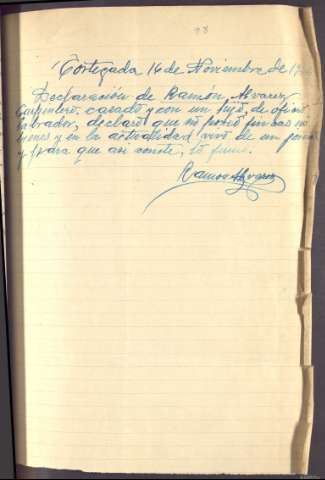 Cortegada 16 de Noviembre de
Declaración de Ramón Alvarez
Carpintero, casado y con un hijo, de oficio
labrador, declaro que no poseo fincas ni
bienes y en la actualidad vivo de un
y para que asi conste, lo firmo.
Ramon Alvarez